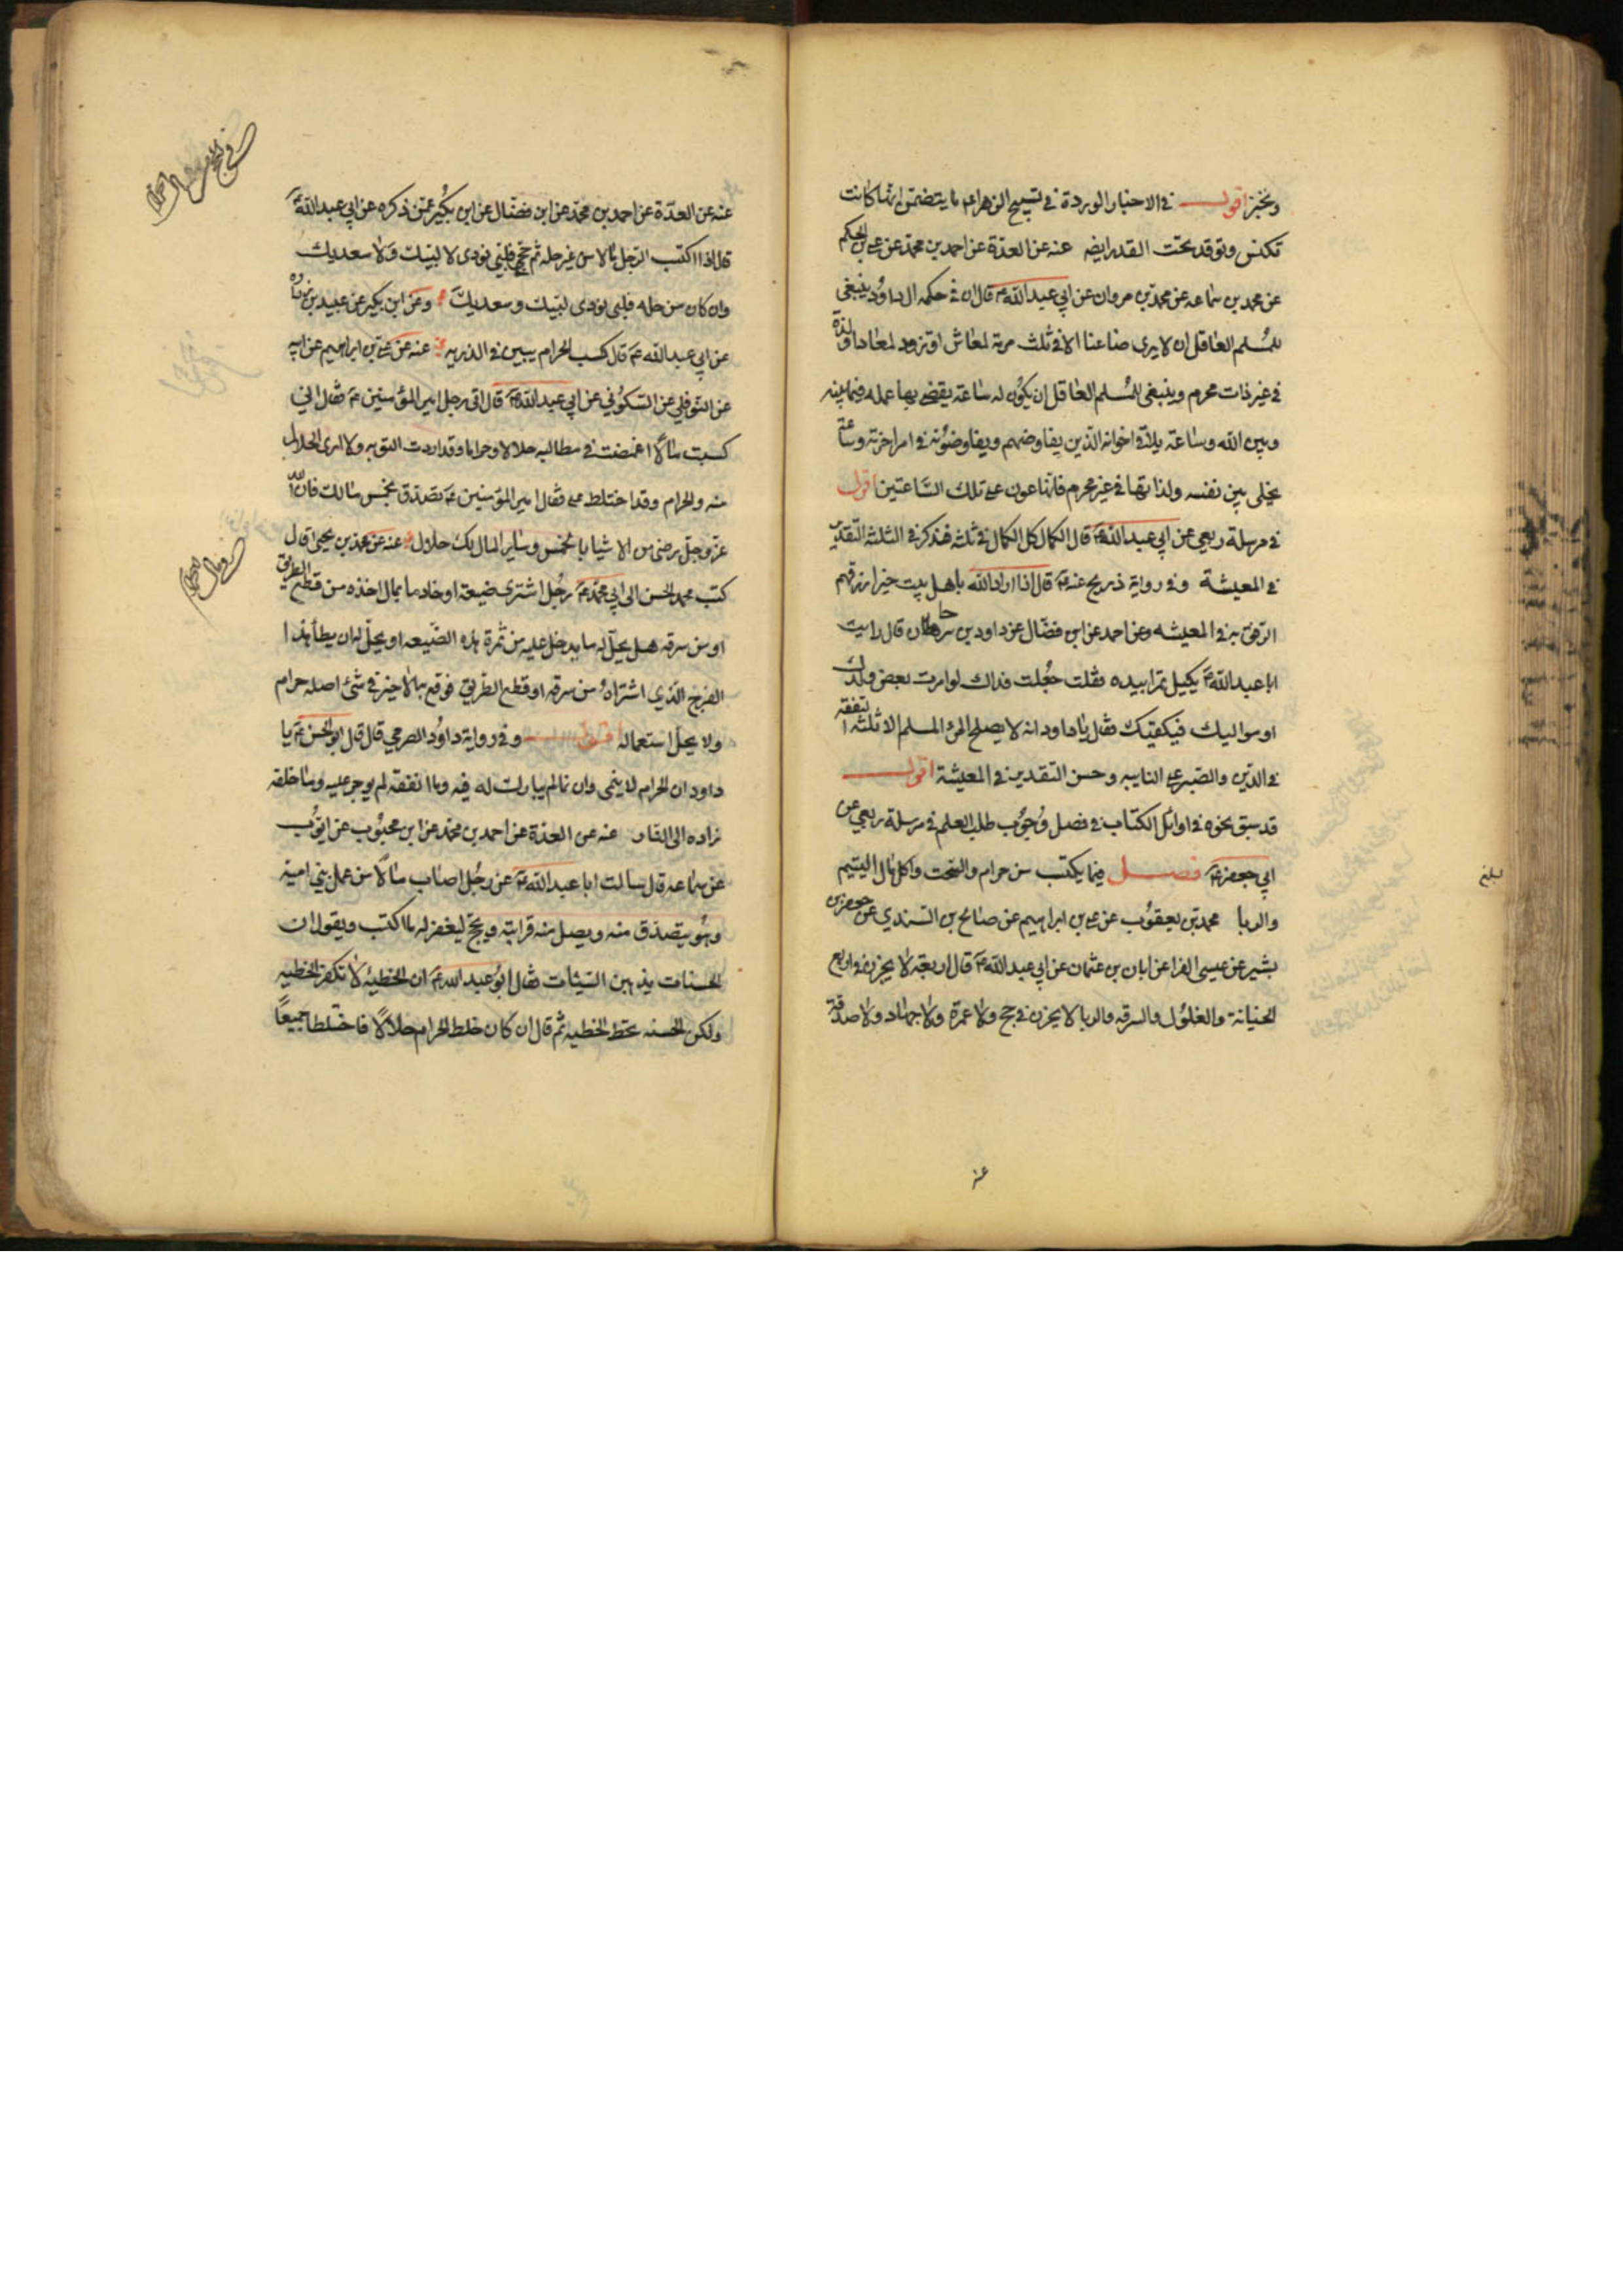 وتخبز اقول في الاخبار الوردة في تسبيح الزهراء ع ما يتضمن انها كانت
تكنس وتوقد تحت القدر ايضه عنه عن العدة عن احمد بن محمد عن علي بن الحكم
عن محمد بن سماعه عن محمد بن مروان عن ابي عبد الله ع قال ان في حكمه ال داود ينبغي
للمسلم العاقل ان لا يرى ضاعنا الا في ثلث مرمة لمعاش او تزود لمعاد او لذة
في غير ذات محرم وينبغي للمسلم العاقل ان يكون له ساعة يقضي بها عمله فيما بينه
وبين الله وساعة يلاقي اخوانه الذين يفاوضهم ويفاوضونه في امر اخرته وساعة
يخلى بين نفسه ولذاتها في غير محرم فانها عون على تلك الساعتين اقول
في مرسلة ربعي عن ابي عبد الله ع قال الكمال كل الكمال في ثلثه فذكر في الثلثه التقدير
في المعيشة وفي رواية ذريح عنه ع قال اذا اراد الله باهل بيت خيرا رزقهم
الرفق في المعيشه وعن احمد عن ابن فضال عن داود بن سرحان قال رايت
ابا عبد الله ع يكيل تمرا بيده فقلت جعلت فداك لو امرت بعض ولدك
او مواليك فيكفيك فقال يا داود انه لا يصلح المرء المسلم الا ثلثه التفقه
في الدين والصبر على النايبه وحسن التقدير في المعيشة اقول
قد سبق نحوه في اوائل الكتاب في فضل وجوب طلب العلم في مرسلة ربعي عن
ابي جعفر ع فصل فيما يكتب من حرام والسحت واكل مال اليتيم
والربا محمد بن يعقوب عن علي بن ابراهيم عن صالح بن السندي عن جعفر بن
بشير عن عيسى الفرا عن ابان بن عثمان عن ابي عبد الله ع قال اربعة لا يجزن في اربع
الخيانة والغلول والسرقه والربا لا يجزن في حج ولا عمرة ولا جهاد ولا صدقة
بلغ
عنه
عنه عن العدة عن احمد بن محمد عن ابن فضال عن ابن بكير عمن ذكره عن ابي عبد الله ع
قال اذا اكتب الرجل مالا من غير حله ثم حج فلبى نودي لا لبيك ولا سعديك
وان كان من حله فلبى نودي لبيك وسعديك وعن ابن بكير عن عبيد بن زرارة
عن ابي عبد الله ع قال كسب الحرام يبين في الذريه عنه عن علي بن ابراهيم عن ابيه
عن النوفلي عن السكوني عن ابي عبد الله ع قال اتى رجل امير المؤمنين ع فقال اني
كسبت مالا اغمضت في مطالبه حلالا وحراما وقد اردت التوبه ولا ادري الحلال
منه والحرام وقد اختلط علي فقال امير المؤمنين ع تصدق بخمس مالك فان الله
عز وجل رضى من الاشيا بالخمس وساير المال لك حلال عنه عن محمد بن يحيى قال
كتب محمد الحسن الى ابي محمد ع رجل اشترى ضيعة او خادما بمال اخذه من قطع الطريق
او من سرقه هل يحل له ما يدخل عليه من ثمرة هذه الضيعه او يحل له ان يطأ هذا
الفرج الذي اشتراه من سرقه او قطع الطريق فوقع ع لا خير في شئ اصله حرام
ولا يحل استعماله اقول وفي رواية داود الصرمي قال قال ابو الحسن ع يا
داود ان الحرام لا ينمى وان نما لم يبارك له فيه وما انفقه لم يوجر عليه وما خلفه
زاده الى النار عنه عن العدة عن احمد بن محمد عن ابن محبوب عن ايوب
عن سماعه قال سالت ابا عبد الله ع عن رجل اصاب مالا من عمل بني امية
وهو يتصدق منه ويصل منه قرابته ويحج ليغفر له ما اكتب ويقول ان
الحسنات يذهبن السيئات فقال ابو عبد الله ع ان الخطيئه لا تكفر الخطيه
ولكن الحسنه تحط الخطيه ثم قال ان كان خلط الحرام حلالا فاختلطا جميعا